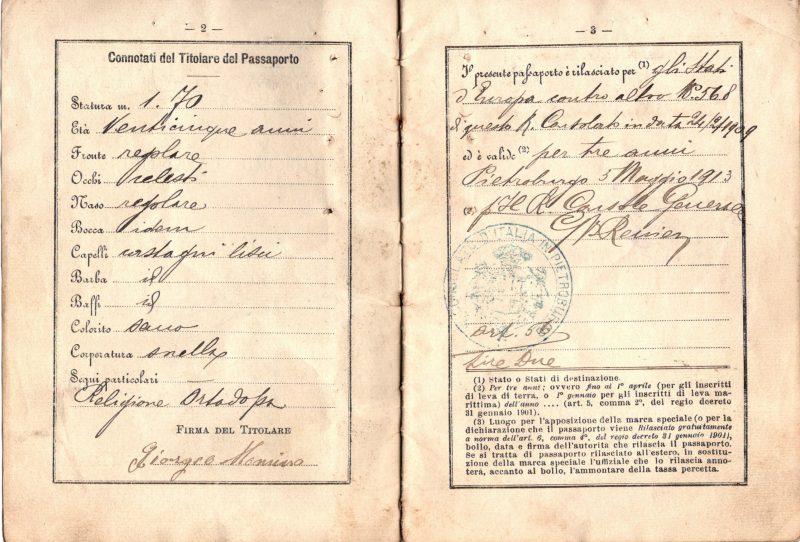 — 2 —
Connotati del Titolare del Passaporto
Statura m. 1.70
Età Venticinque anni
Fronte regolare
Occhi celesti
Naso regolare
Bocca idem
Capelli castagni lisci
Barba id
Baffi id
Colorito sano
Corporatura snella
Segni particolari
Religione Ortodossa
FIRMA DEL TITOLARE
Giorgio
— 3 —
Il presente passaporto è rilasciato per (1) gli Stati
d'Europa contro altro No 568
di questo R. Consolato in data 24/2/1909
ed è valido (2) per tre anni
Pietroburgo 5 Maggio 1913
Il R. Console Generale
CONSOLATO D'ITALIA IN PIETROBURGO
Art. 56
Lire Due
(1) Stato o Stati di destinazione.
(2) Per tre anni; ovvero fino al 1° aprile (per gli inscritti
di leva di terra, o 1° gennaio per gli inscritti di leva ma-
rittima) dell'anno .... (art. 5, comma 2°, del regio decreto
31 gennaio 1901).
(3) Luogo per l'apposizione della marca speciale (o per la
dichiarazione che il passaporto viene Rilasciato gratuitamente
a norma dell'art. 6, comma 4°, del regio decreto 31 gennaio 1901),
bollo, data e firma dell'autorità che rilascia il passaporto.
Se si tratta di passaporto rilasciato all'estero, in sostitu-
zione della marca speciale l'uffiziale che lo rilascia anno-
terà, accanto al bollo, l'ammontare della tassa percetta.